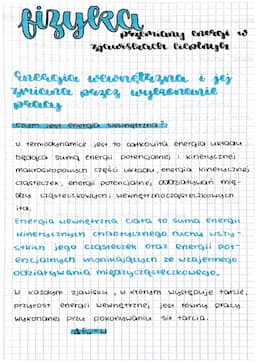 fizyka
przemiany energii w
zjawiskach cieplnych
Energia wewnętrzna i jej
zmiana przez wykonanie
pracy
Czym jest energia wewnętrzna?
w termodynamice jest to całkowita energia układu
będąca sumą energii potencjalnej i kinetycznej
makroskopowych części układu, energia kinetycznej
cząsteczek, energii potencjalnej oddziaływań mię-
dzy cząsteczkowych i wewnątrzcząsteczkowych
itd.
Energia wewnętrzna ciała to suma energii
kinetycznych chaotycznego ruchu wszy-
stkich jego cząsteczek oraz energii pot-
encjalnych wynikających ze wzajemnego
oddziaływania międzycząsteczkowego.
W każdym zjawisku, w którym występuje tarcie,
przyrost energii wewnętrznej jest równy pracy
wykonanej przy pokonywaniu sił tarcia.